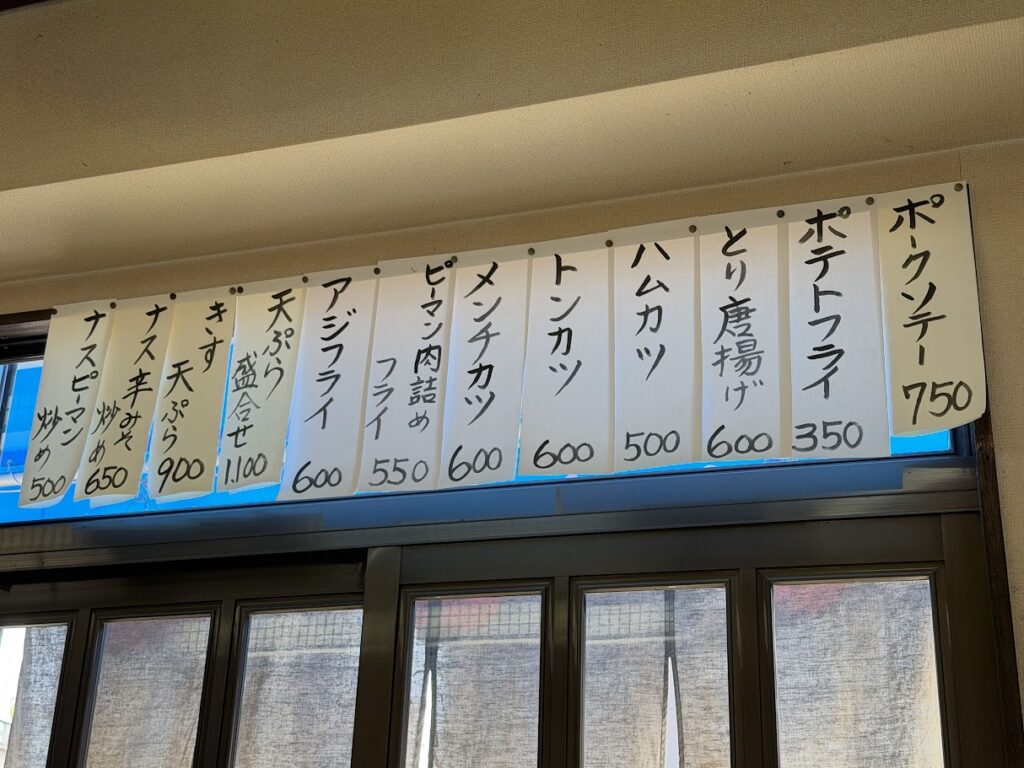 ポークソテー
750
ポテトフライ
350
とり唐揚げ
600
ハムカツ
500
トンカツ
600
メンチカツ
600
ピーマン肉詰め
フライ
550
アジフライ
600
天ぷら
盛合せ
1,100
きす
天ぷら
900
ナス辛みそ
炒め
650
ナスピーマン
炒め
500